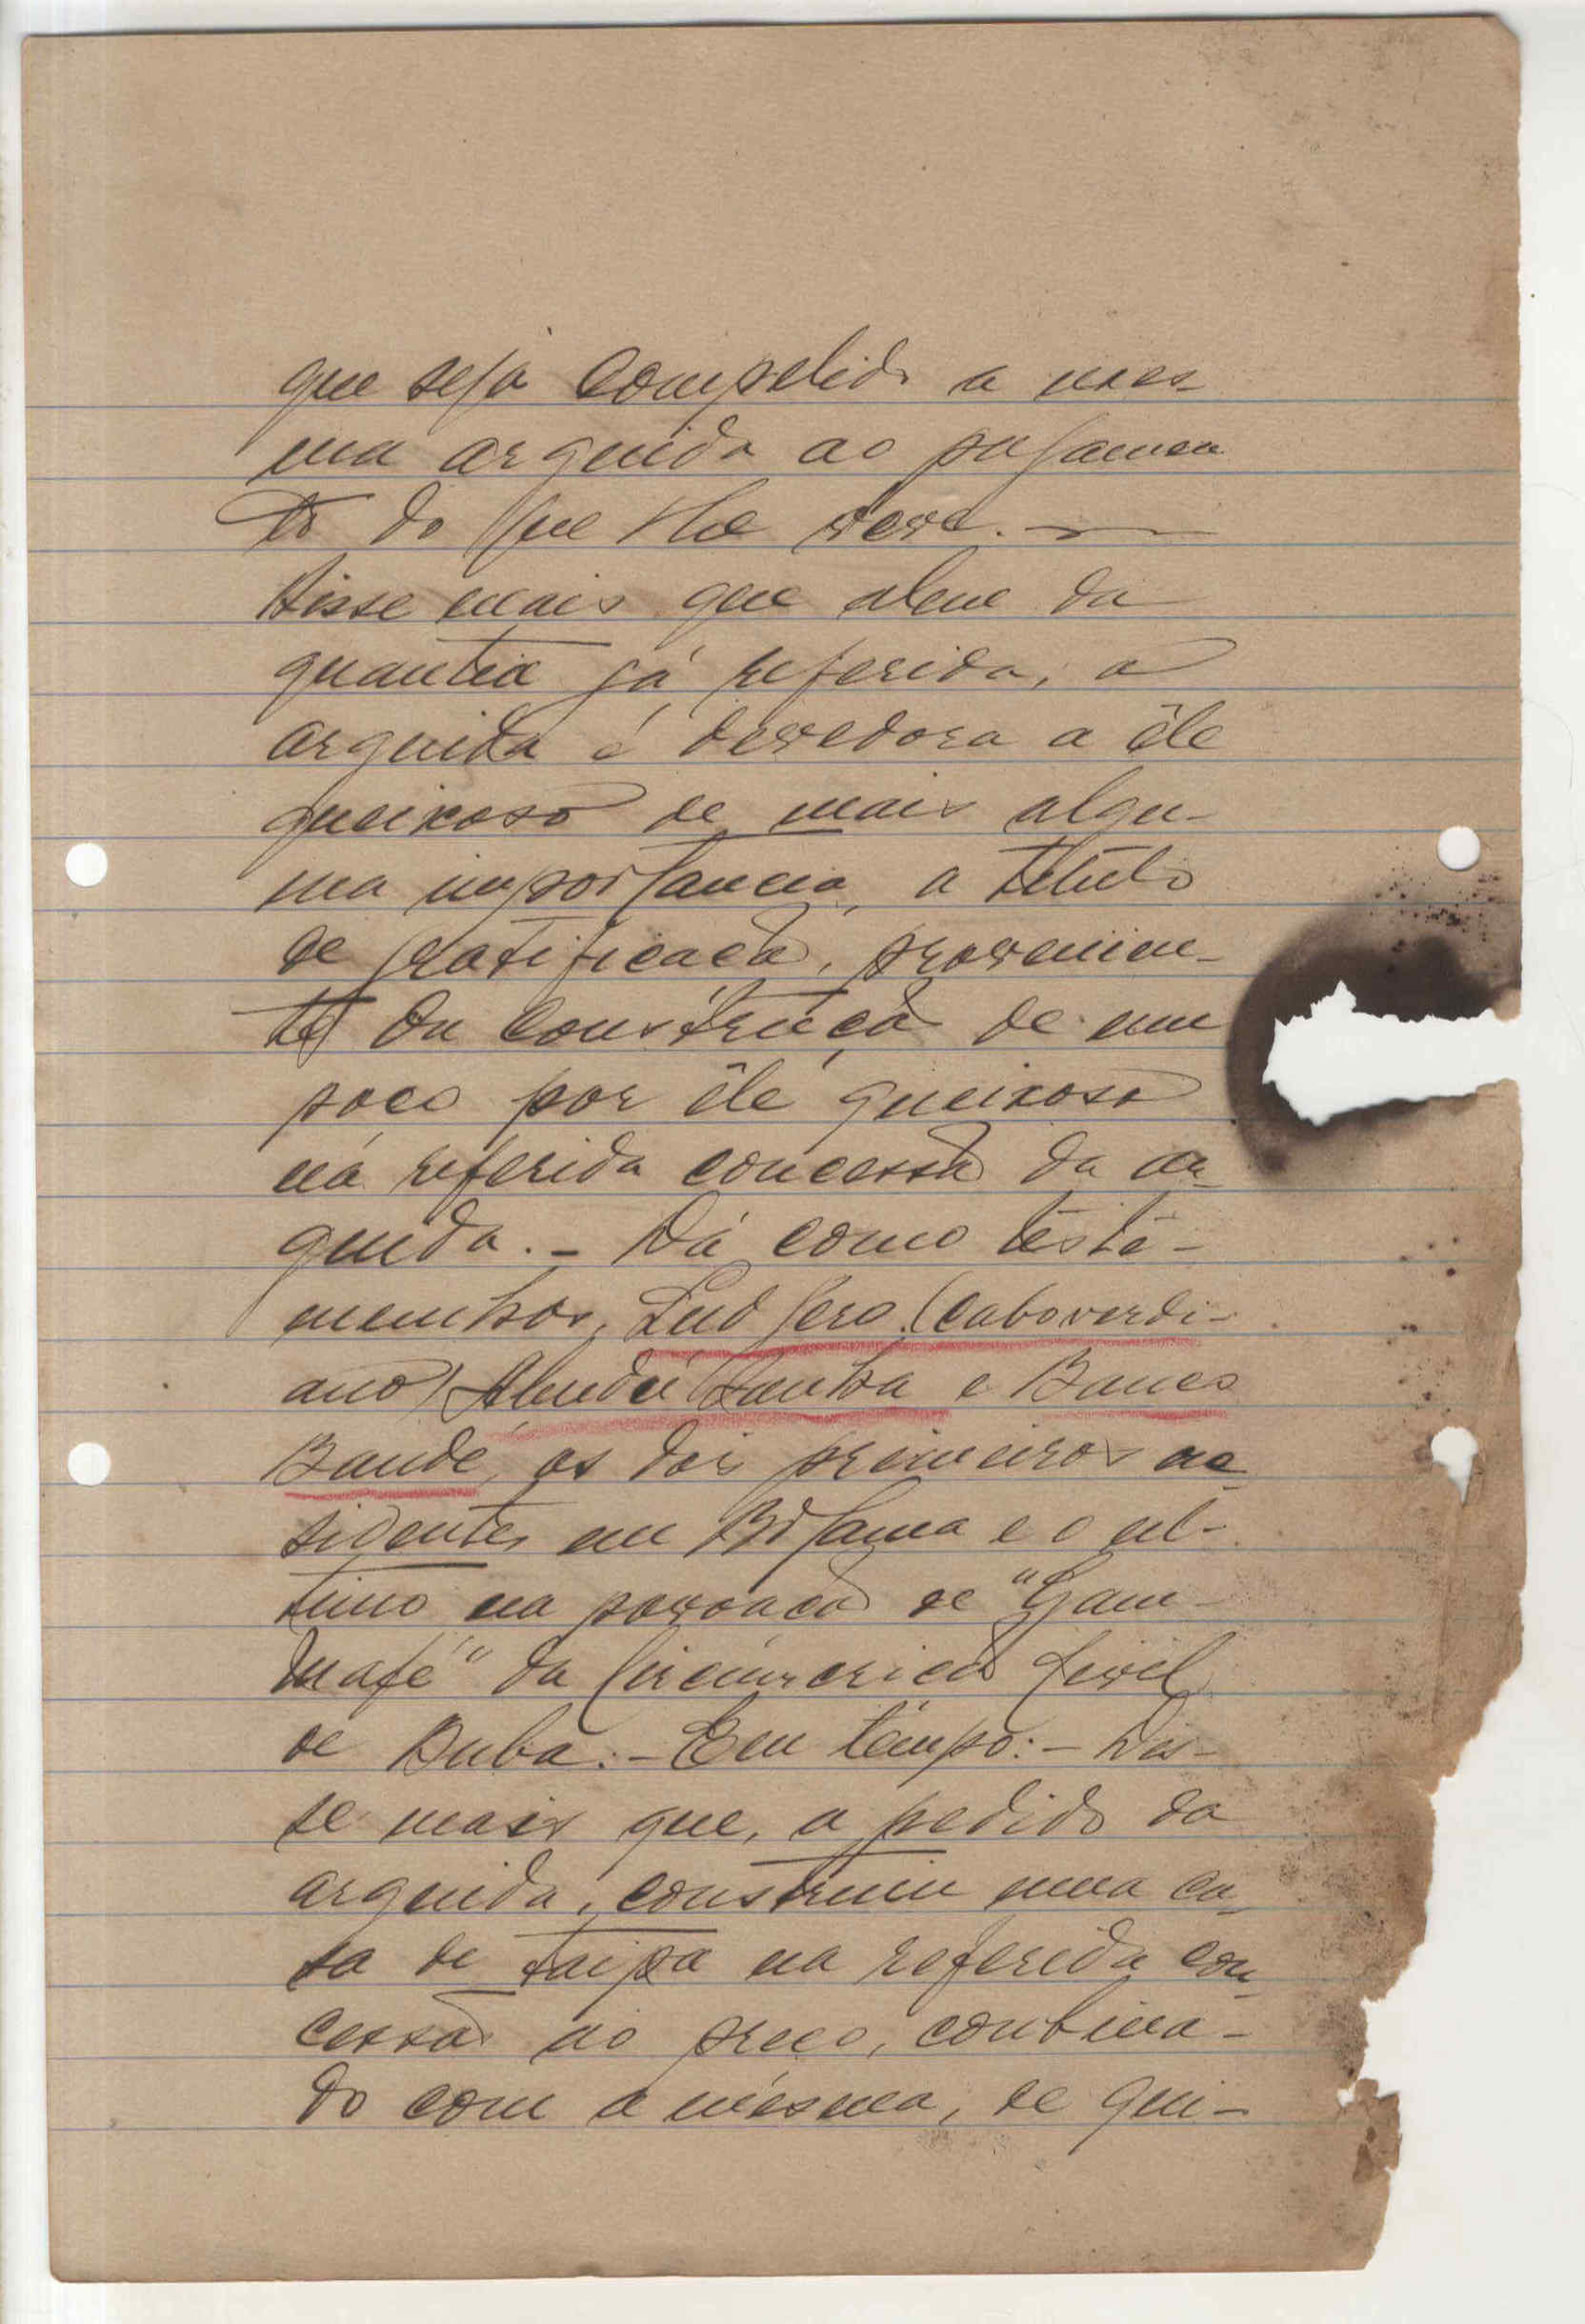 que seja compelida a mes-
ma arguida ao pagamen
to do que lhe deve. —
Disse mais que alem da
quantia já referida, a
arguida é devedora a êle
queixoso de mais algu-
ma importancia, a titulo
de gratificação, provenien-
te da construção de um
poço por êle queixoso
na referida concessão da ar-
guida. - Dá como teste-
munhas, Ludgero (caboverdi-
ano) e
Bandé, os dois primeiros re-
sidentes em Bolama e o ul-
timo na povoação de "Gam-
Mafé" da Circunscrição Civil
de Buba. - Em tempo: - Dis-
se mais que, a pedido da
arguida, construiu uma ca-
sa de taipa na referida con-
cessão ao preço, combina-
do com a mesma, de qui-